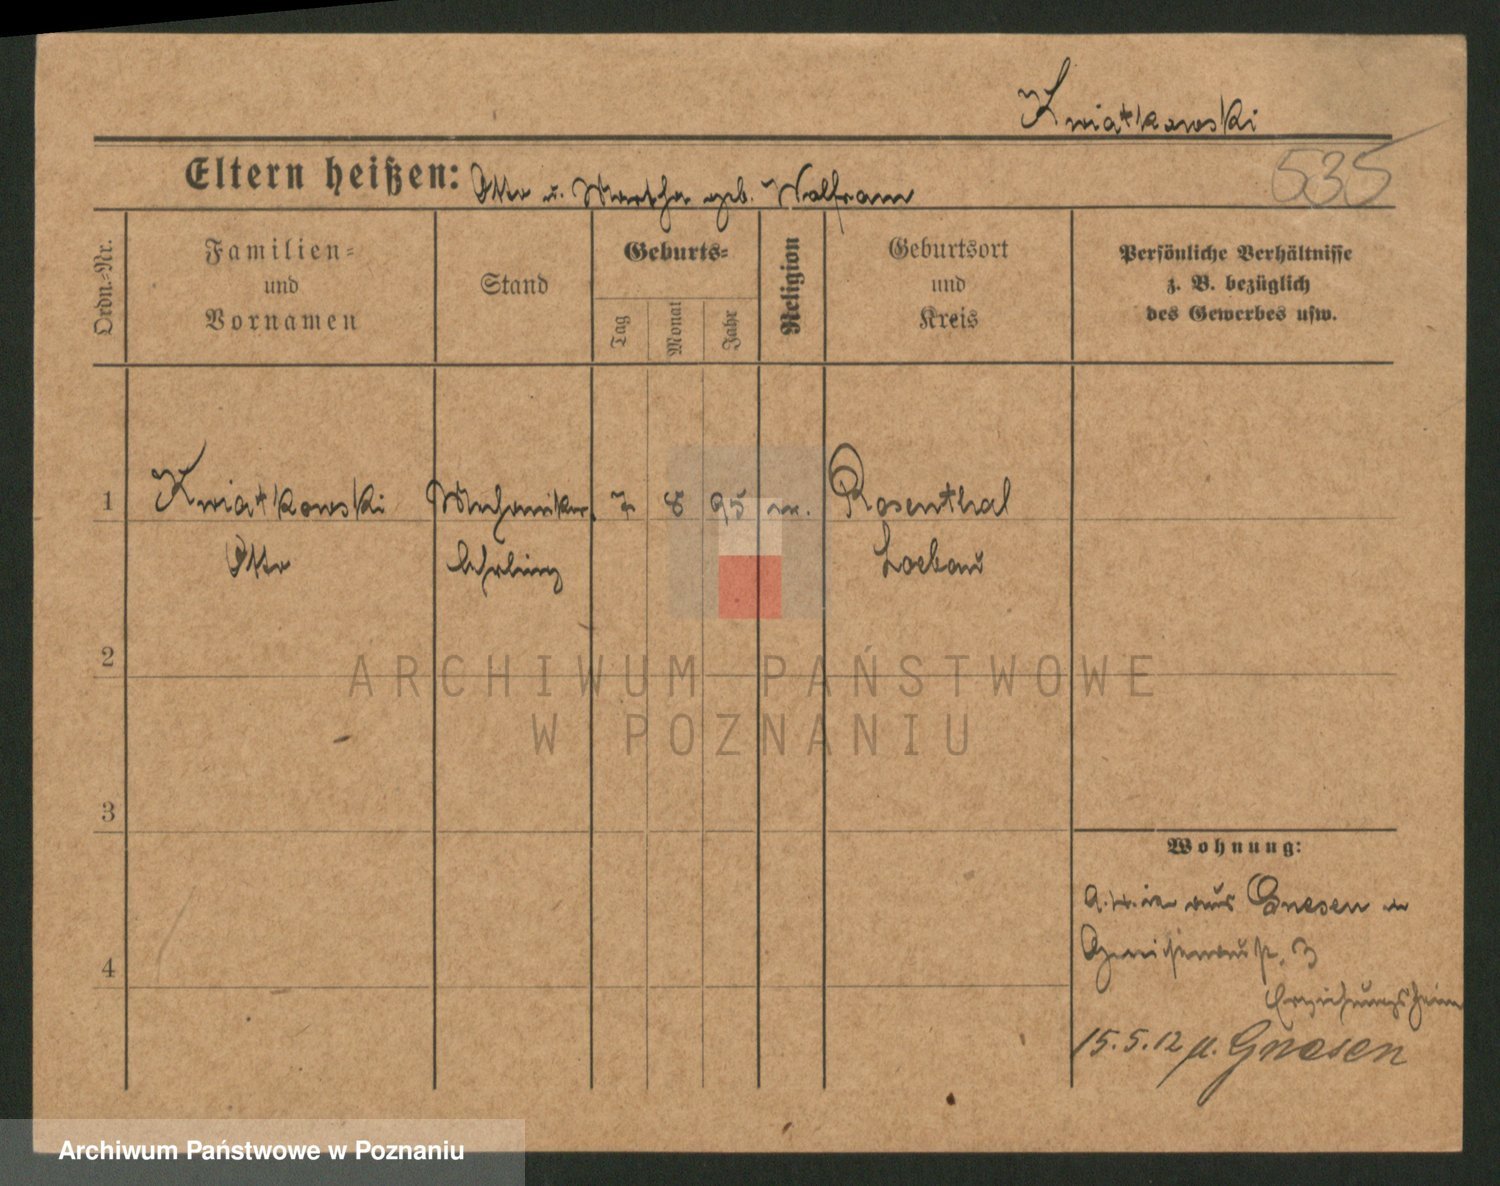 Kwiatkowski
Eltern heißen: Otto u. Martha geb. Wolfram
535
Ordn.-Nr.
Familien-
und
Vornamen
Stand
Geburts-
Tag
Monat
Jahr
Religion
Geburtsort
und
Kreis
Persönliche Verhältnisse
z. B. bezüglich
des Gewerbes usw.
1 Kwiatkowski Mechaniker 7 8 95 Rosenthal
Otto lehrling Loebau
2
ARCHIWUM PAŃSTWOWE
W POZNANIU
3
Wohnung:
aus Gnesen
4
3
Erziehungsheim
15.5.12 n. Gnesen
Archiwum Państwowe w Poznaniu